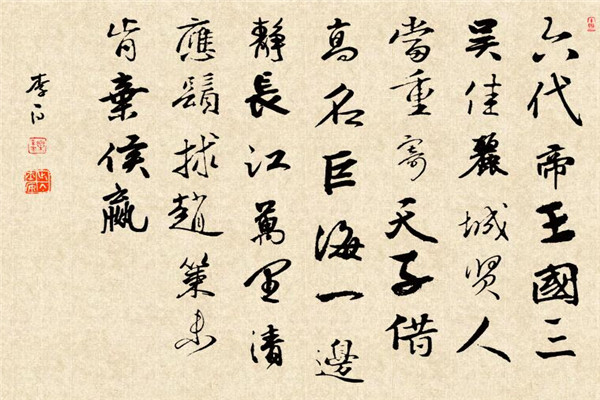 六代帝王國三
吴佳麗城贤人
當重寄天子借
高名巨海一邊
靜長江萬里清
應鬚捄趙策未
肯棄侯嬴
李白